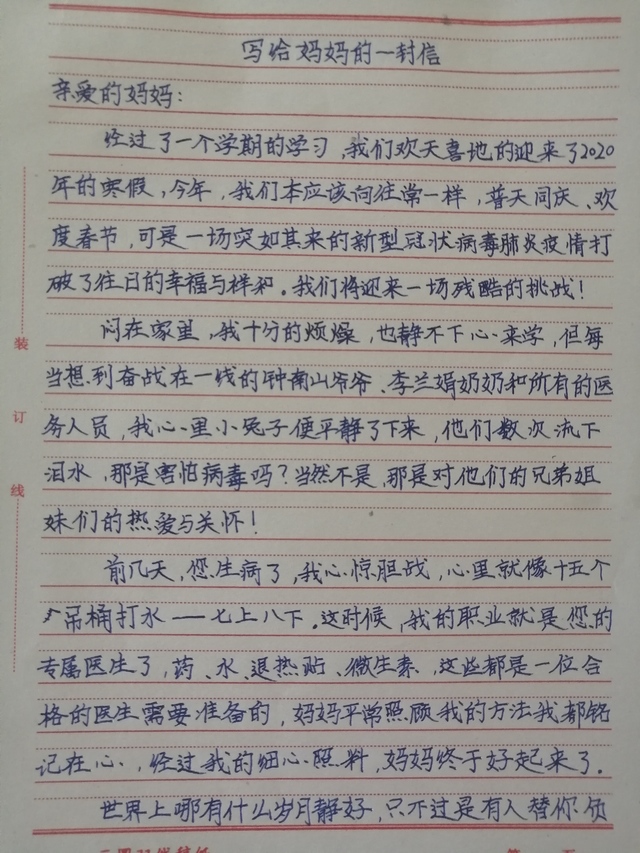 写给妈妈的一封信
亲爱的妈妈：
经过了一个学期的学习，我们欢天喜地的迎来了2020
年的寒假，今年，我们本应该向往常一样，普天同庆、欢
度春节，可是一场突如其来的新型冠状病毒肺炎疫情打
破了往日的幸福与祥和。我们将迎来一场残酷的挑战！
闷在家里，我十分的烦燥，也静不下心来学，但每
当想到奋战在一线的钟南山爷爷、李兰娟奶奶和所有的医
务人员，我心里小兔子便平静了下来，他们数次流下
泪水，那是害怕病毒吗？当然不是，那是对他们的兄弟姐
妹们的热爱与关怀！
前几天，您生病了，我心惊胆战，心里就像十五个
吊桶打水——七上八下。这时候，我的职业就是您的
专属医生了，药、水、退热贴、微生素，这些都是一位合
格的医生需要准备的，妈妈平常照顾我的方法我都铭
记在心，经过我的细心照料，妈妈终于好起来了。
世界上哪有什么岁月静好，只不过是有人替你负
装
订
线